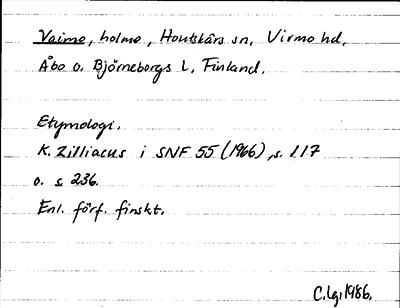 Vaimo, holme, Houtskärs sn, Virmo hd,
Åbo o. Björneborgs l, Finland.
Etymologi.
K. Zilliacus i SNF 55 (1966), s. 117
o. s. 236.
Enl. förf. finskt.
C.Lg, 1986.